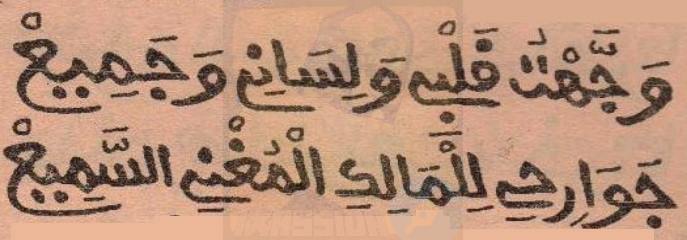 وَجَّهْتُ قَلْبِي وَلِسَانِي وَجَمِيعْ
جَوَارِحِي لِلْمَالِكِ الْمُغْنِي السَّمِيعْ